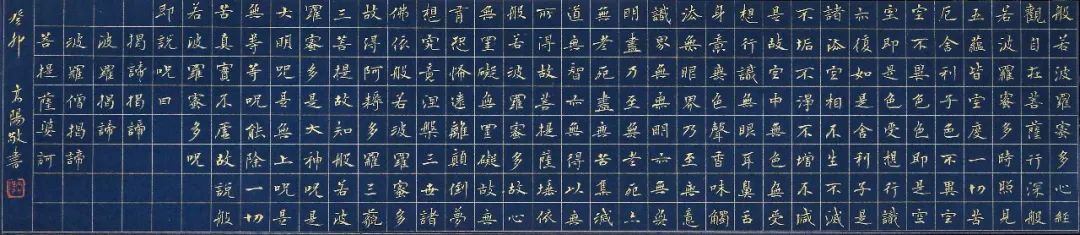 般若波羅蜜多心經
觀自在菩薩行深般
若波羅蜜多時照見
五蘊皆空度一切苦
厄舍利子色不異空
空不異色色即是空
空即是色受想行識
亦復如是舍利子是
諸法空相不生不滅
不垢不淨不增不減
是故空中無色無受
想行識無眼耳鼻舌
身意無色聲香味觸
法無眼界乃至無意
識界無無明亦無無
明盡乃至無老死亦
無老死盡無苦集滅
道無智亦無得以無
所得故菩提薩埵依
般若波羅蜜多故心
無罣礙無罣礙故無
有恐怖遠離顛倒夢
想究竟涅槃三世諸
佛依般若波羅蜜多
故得阿耨多羅三藐
三菩提故知般若波
羅蜜多是大神咒是
大明咒是無上咒是
無等等咒能除一切
苦真實不虛故說般
若波羅蜜多咒
即說咒曰
揭諦揭諦
波羅揭諦
波羅僧揭諦
菩提薩婆訶
癸卯 陽敬書